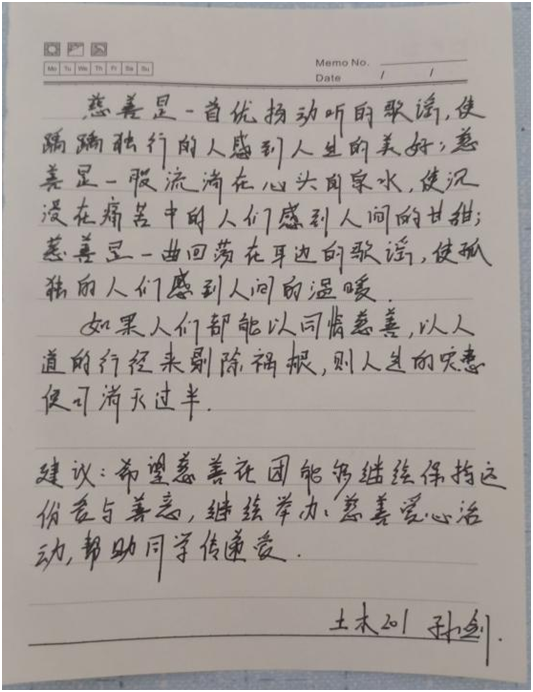 Mo Tu We Th Fr Sa Su
Memo No.
Date / /
慈善是一首优扬动听的歌谣,使
踽踽独行的人感到人生的美好;慈
善是一股流淌在心头的泉水,使沉
浸在痛苦中的人们感到人间的甘甜;
慈善是一曲回荡在耳边的歌谣,使孤
独的人们感到人间的温暖.
如果人们都能以同情慈善,以人
道的行径来剔除祸根,则人生的灾患
便可消灭过半.
建议:希望慈善社团能够继续保持这
份爱与善意,继续举办慈善爱心活
动,帮助同学传递爱.
土木201 孙剑.